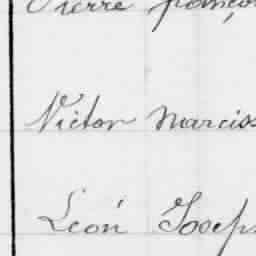 Pierre françoi
Victor Narciss
Léon Josep